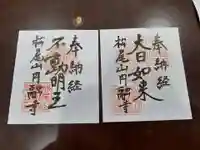 奉納経
不動明王
松尾山円融寺
奉納経
大日如来
松尾山円融寺